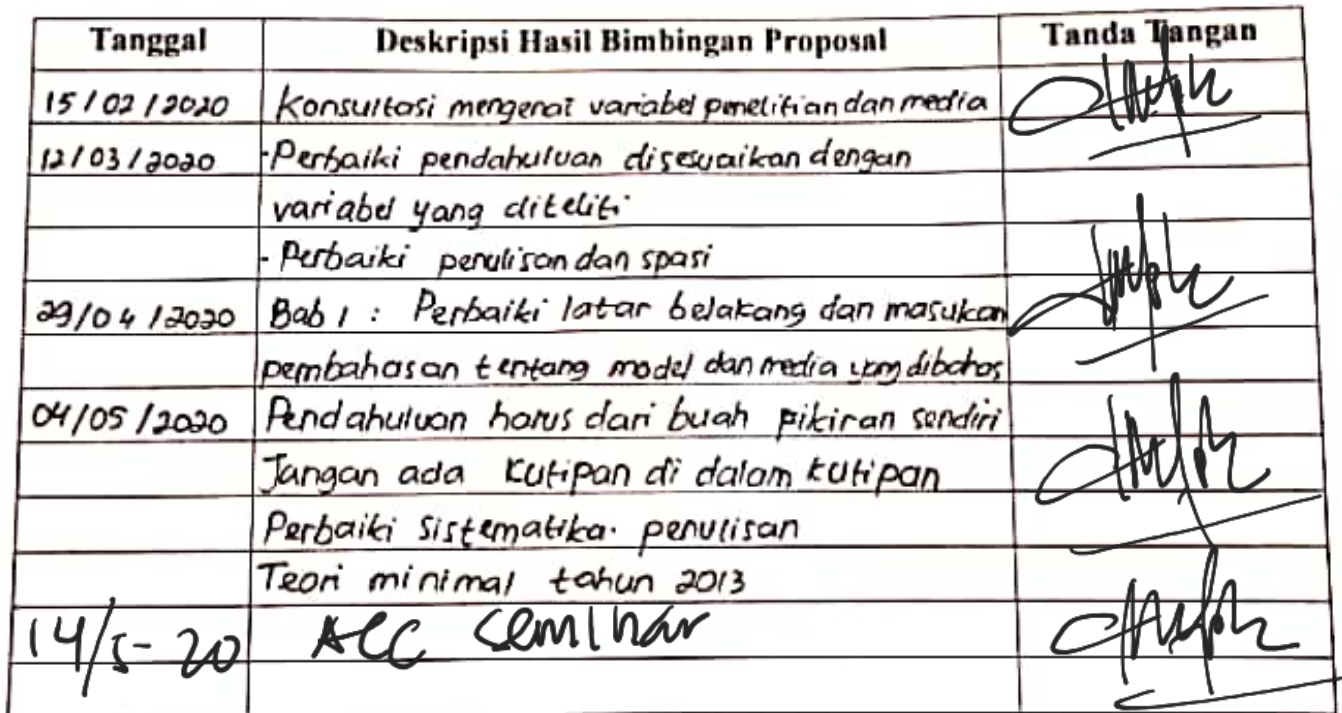 Tanggal Deskripsi Hasil Bimbingan Proposal Tanda Tangan
15/02/2020 Konsultasi mengenai variabel penelitian dan media
12/03/2020 -Perbaiki pendahuluan disesuaikan dengan
variabel yang diteliti
- Perbaiki penulisan dan spasi
29/04/2020 Bab 1 : Perbaiki latar belakang dan masukan
pembahasan tentang model dan media yang dibahas
04/05/2020 Pendahuluan harus dari buah pikiran sendiri
Jangan ada kutipan di dalam kutipan
Perbaiki sistematika penulisan
Teori minimal tahun 2013
14/5-20 ACC seminar